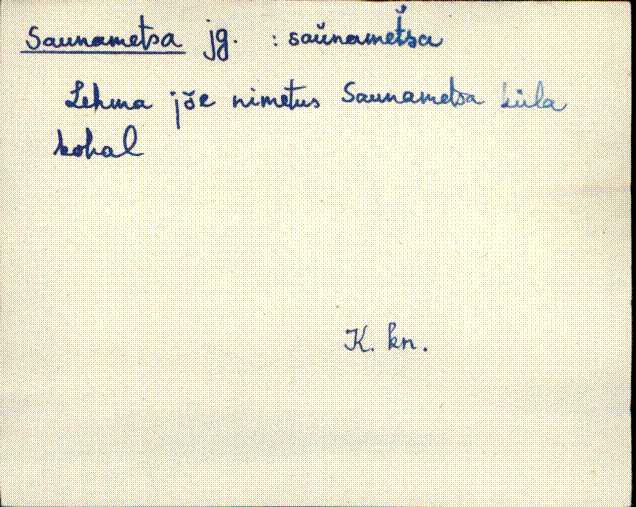 Saunametsa jg. : saŭnamet̆sa
Lehma jõe nimetus Saunametsa küla
kohal
K. kn.